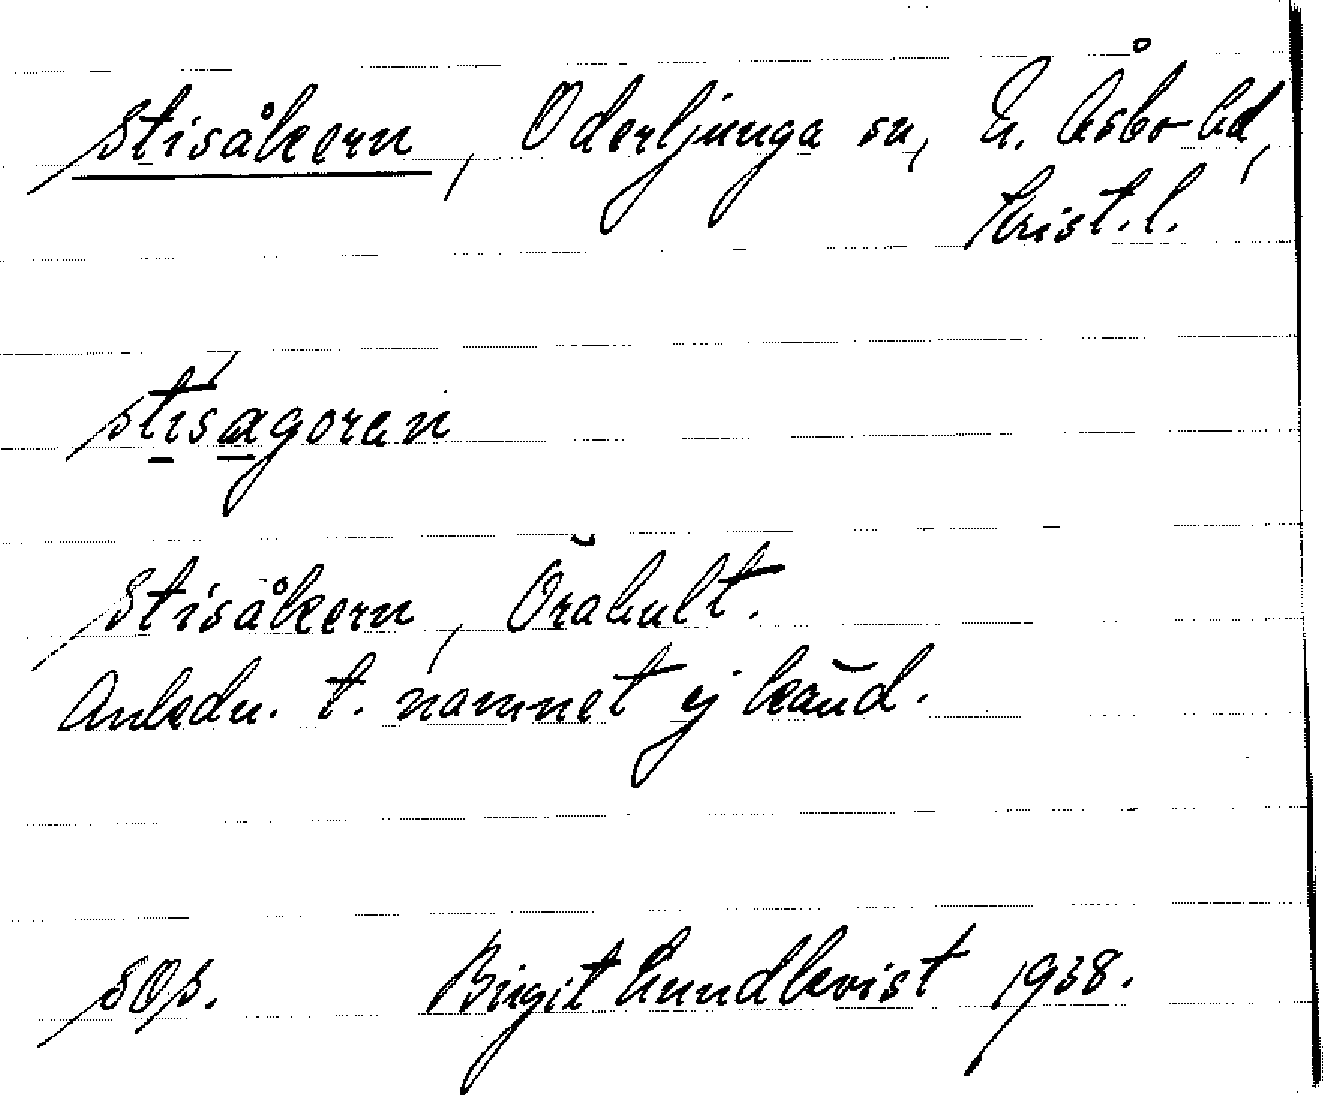 Stisåkern, Oderljunga sn, N. Åsbo hd,
Krist. l.
stisagoran
Stisåkern, Örahult.
Anledn. t. namnet ej känd.
sOs. Birgit Lundkvist 1938.